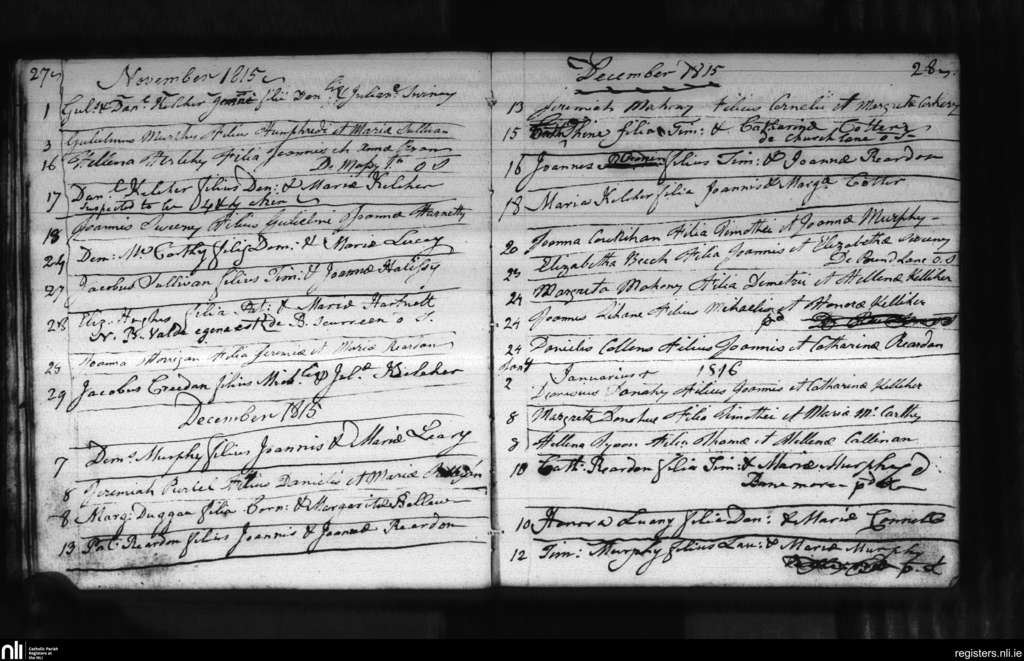 27
November 1815
1 Gul: & Dan: Kelcher filii Den: & Julian: Swiney
3 Gulielmus Murphy filius Humphredi et Maria Sullivan
16 Hellena Herlihy filia Joannis et Anna
O S
17 Dan: Kelcher filius Den: & Mariæ Kelcher
suspected to be
18 Joannis Sweney filius Gulielmi & Joannæ Harnetty
24 Dem: McCarthy filius Dem: & Mariæ Lucey
27 Jacobus Sullivan filius Tim: & Joannæ Halissy
28 Eliz: Hughes filia Pat: & Mariæ Hartnett
N. B. Valde egena est de B. O S.
28 Horigan filia Jeremiæ et Mariæ Reardon
29 Jacobus Creedan filius Mich: & Jul: Kelcher
December 1815
7 Dem: Murphy filius Joannis & Mariæ Leary
8 Jeremiah filius Danielis et Mariæ
8 Marg: Duggan filia Corn: & Margaritæ Bellew
13 Pat: Reardon filius Joannis & Joannæ Reardon
December 1815
28
13 Jeremiah Mahony filius Cornelii et Margreta Corkery
15 filia Tim: & Catharinæ Cotter
de Church Lane O S
16 Joannes filius Tim: & Joannæ Reardon
18 Maria Kelcher filia Joannis & Marg: Cotter
20 Joanna Courtihan filia Timothei et Joannæ Murphy
23 Elizabetha Beech filia Joannis et Elizabethæ Sweeny
De Pound Lane O. S
24 Margreta Mahony filia Demetrii et Hellenæ Kelliher
24 Joannes Lihane filius Michaelis et Honoræ Kelliher
pd
24 Danielis Collens filius Joannis et Catharinæ Reardon
Januarius 1816
2 filius Joannis et Catharinæ Kelliher
8 Margreta Donohue filia Timothei et Maria McCarthy
8 Hellena Ryan filia Thomæ et Hellenæ Callinan
10 Cath: Reardon filia Tim: & Mariæ Murphy
Banemore pd
10 Honora Luany filia Dan: & Mariæ Connell
12 Tim: Murphy filius Lau: & Mariæ Murphy
nli
Catholic Parish
Registers at
the NLI
registers.nli.ie